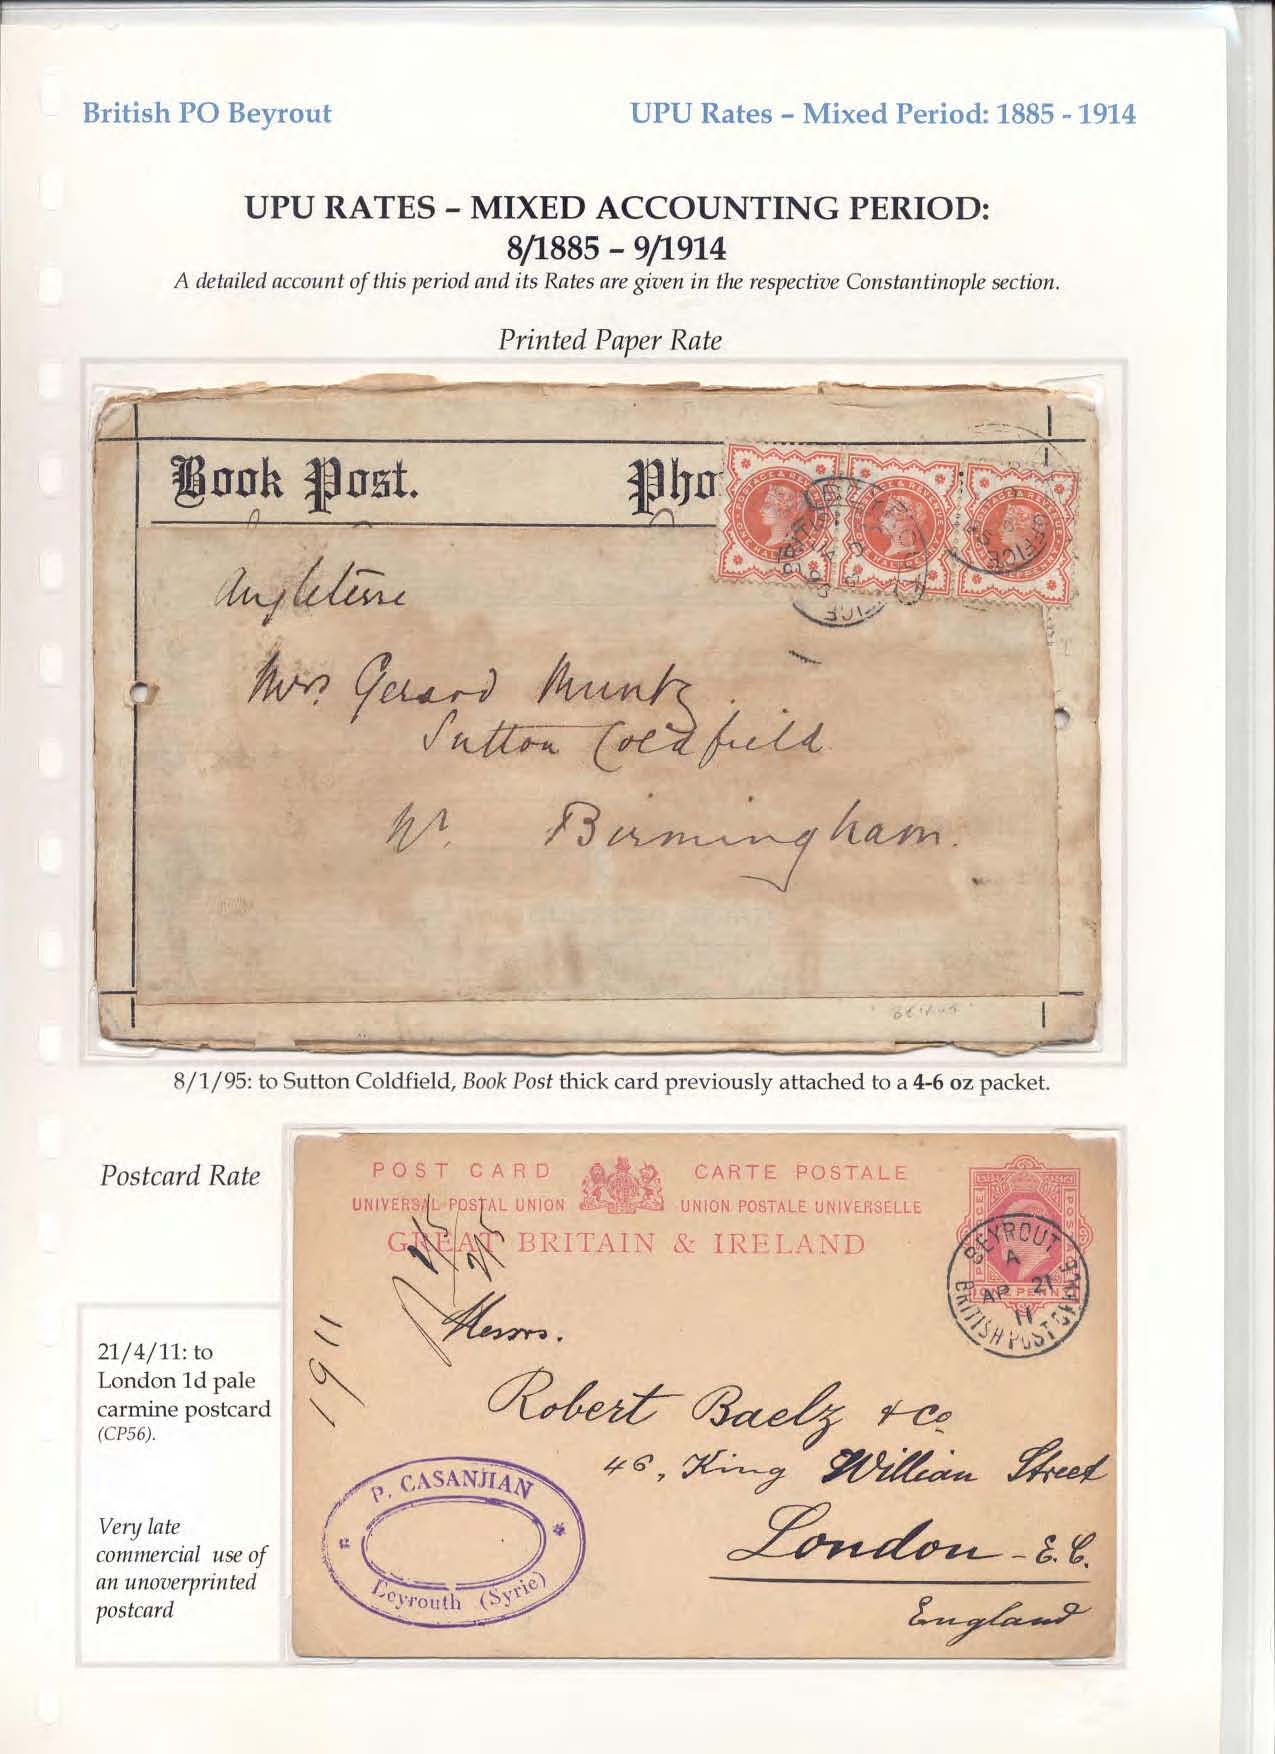 British PO Beyrout
UPU Rates – Mixed Period: 1885 - 1914
UPU RATES – MIXED ACCOUNTING PERIOD:
8/1885 – 9/1914
A detailed account of this period and its Rates are given in the respective Constantinople section.
Printed Paper Rate
Book Post.
Pho
Angleterre
Mrs Gerard Muntz.
Sutton Coldfield
Nr. Birmingham.
8/1/95: to Sutton Coldfield, Book Post thick card previously attached to a 4-6 oz packet.
Postcard Rate
POST CARD
CARTE POSTALE
UNIVERSAL POSTAL UNION
UNION POSTALE UNIVERSELLE
GREAT BRITAIN & IRELAND
BEYROUT
A
AP 21
11
BRITISH POST OFFICE
1911
Messrs.
Robert Baelz & Co
46, King William Street
London - E.C.
England
P. CASANJIAN
Beyrouth (Syrie)
21/4/11: to
London 1d pale
carmine postcard
(CP56).
Very late
commercial use of
an unoverprinted
postcard